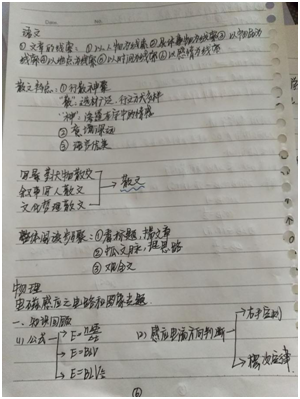 语文
①文章的线索：①以人物为线索②以事物为线索③以物为
线索④以地点为线索⑤以时间为线索⑥以感情为线索
散文特点：①形散神聚
"散"：选材广泛，行文方式多种
"神"：
②意境深邃
③语言优美
写景状物散文
叙事写人散文
文化哲理散文
散文
整体阅读步骤：①看标题，
②抓文脉，理思路
③
物理
电磁感应之电路和图象专题
一、知识回顾
(1)公式 E=nΔΦ/Δt
E=BLV
(2)感应电流方向判断
右手定则
楞次定律
⑥